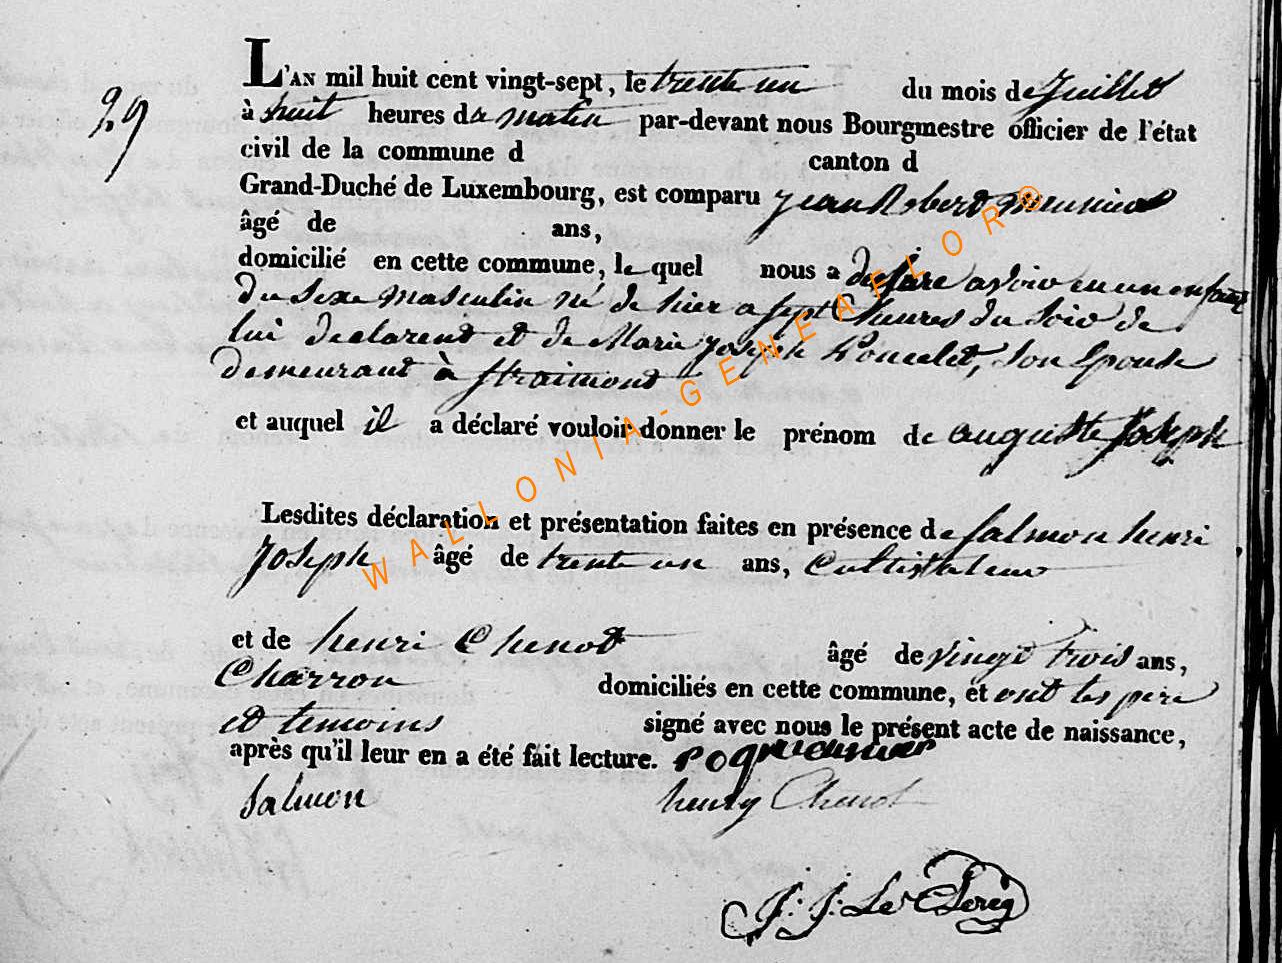 L'AN mil huit cent vingt-sept, le trente un du mois de Juillet
29
à huit heures du matin par-devant nous Bourgmestre officier de l'état
civil de la commune d canton d
Grand-Duché de Luxembourg, est comparu Jean Robert meunier
âgé de ans,
domicilié en cette commune, lequel nous a declare avoir eu un enfant
du Sexe masculin né de hier a sept heures du Soir de
lui declarent et de Marie Joseph Poncelet, Son Epouse
demeurant à Straimont
et auquel il a déclaré vouloir donner le prénom de auguste Joseph
Lesdites déclaration et présentation faites en présence de Salmon henri
Joseph âgé de trente un ans, Cultivateur
et de henri Chenot âgé de vingt trois ans,
Charron domiciliés en cette commune, et ont les pere
et temoins signé avec nous le présent acte de naissance,
après qu'il leur en a été fait lecture.
Salmon henry Chenot
J: J: Le Clereq
WALLONIA-GENEAFLOR®